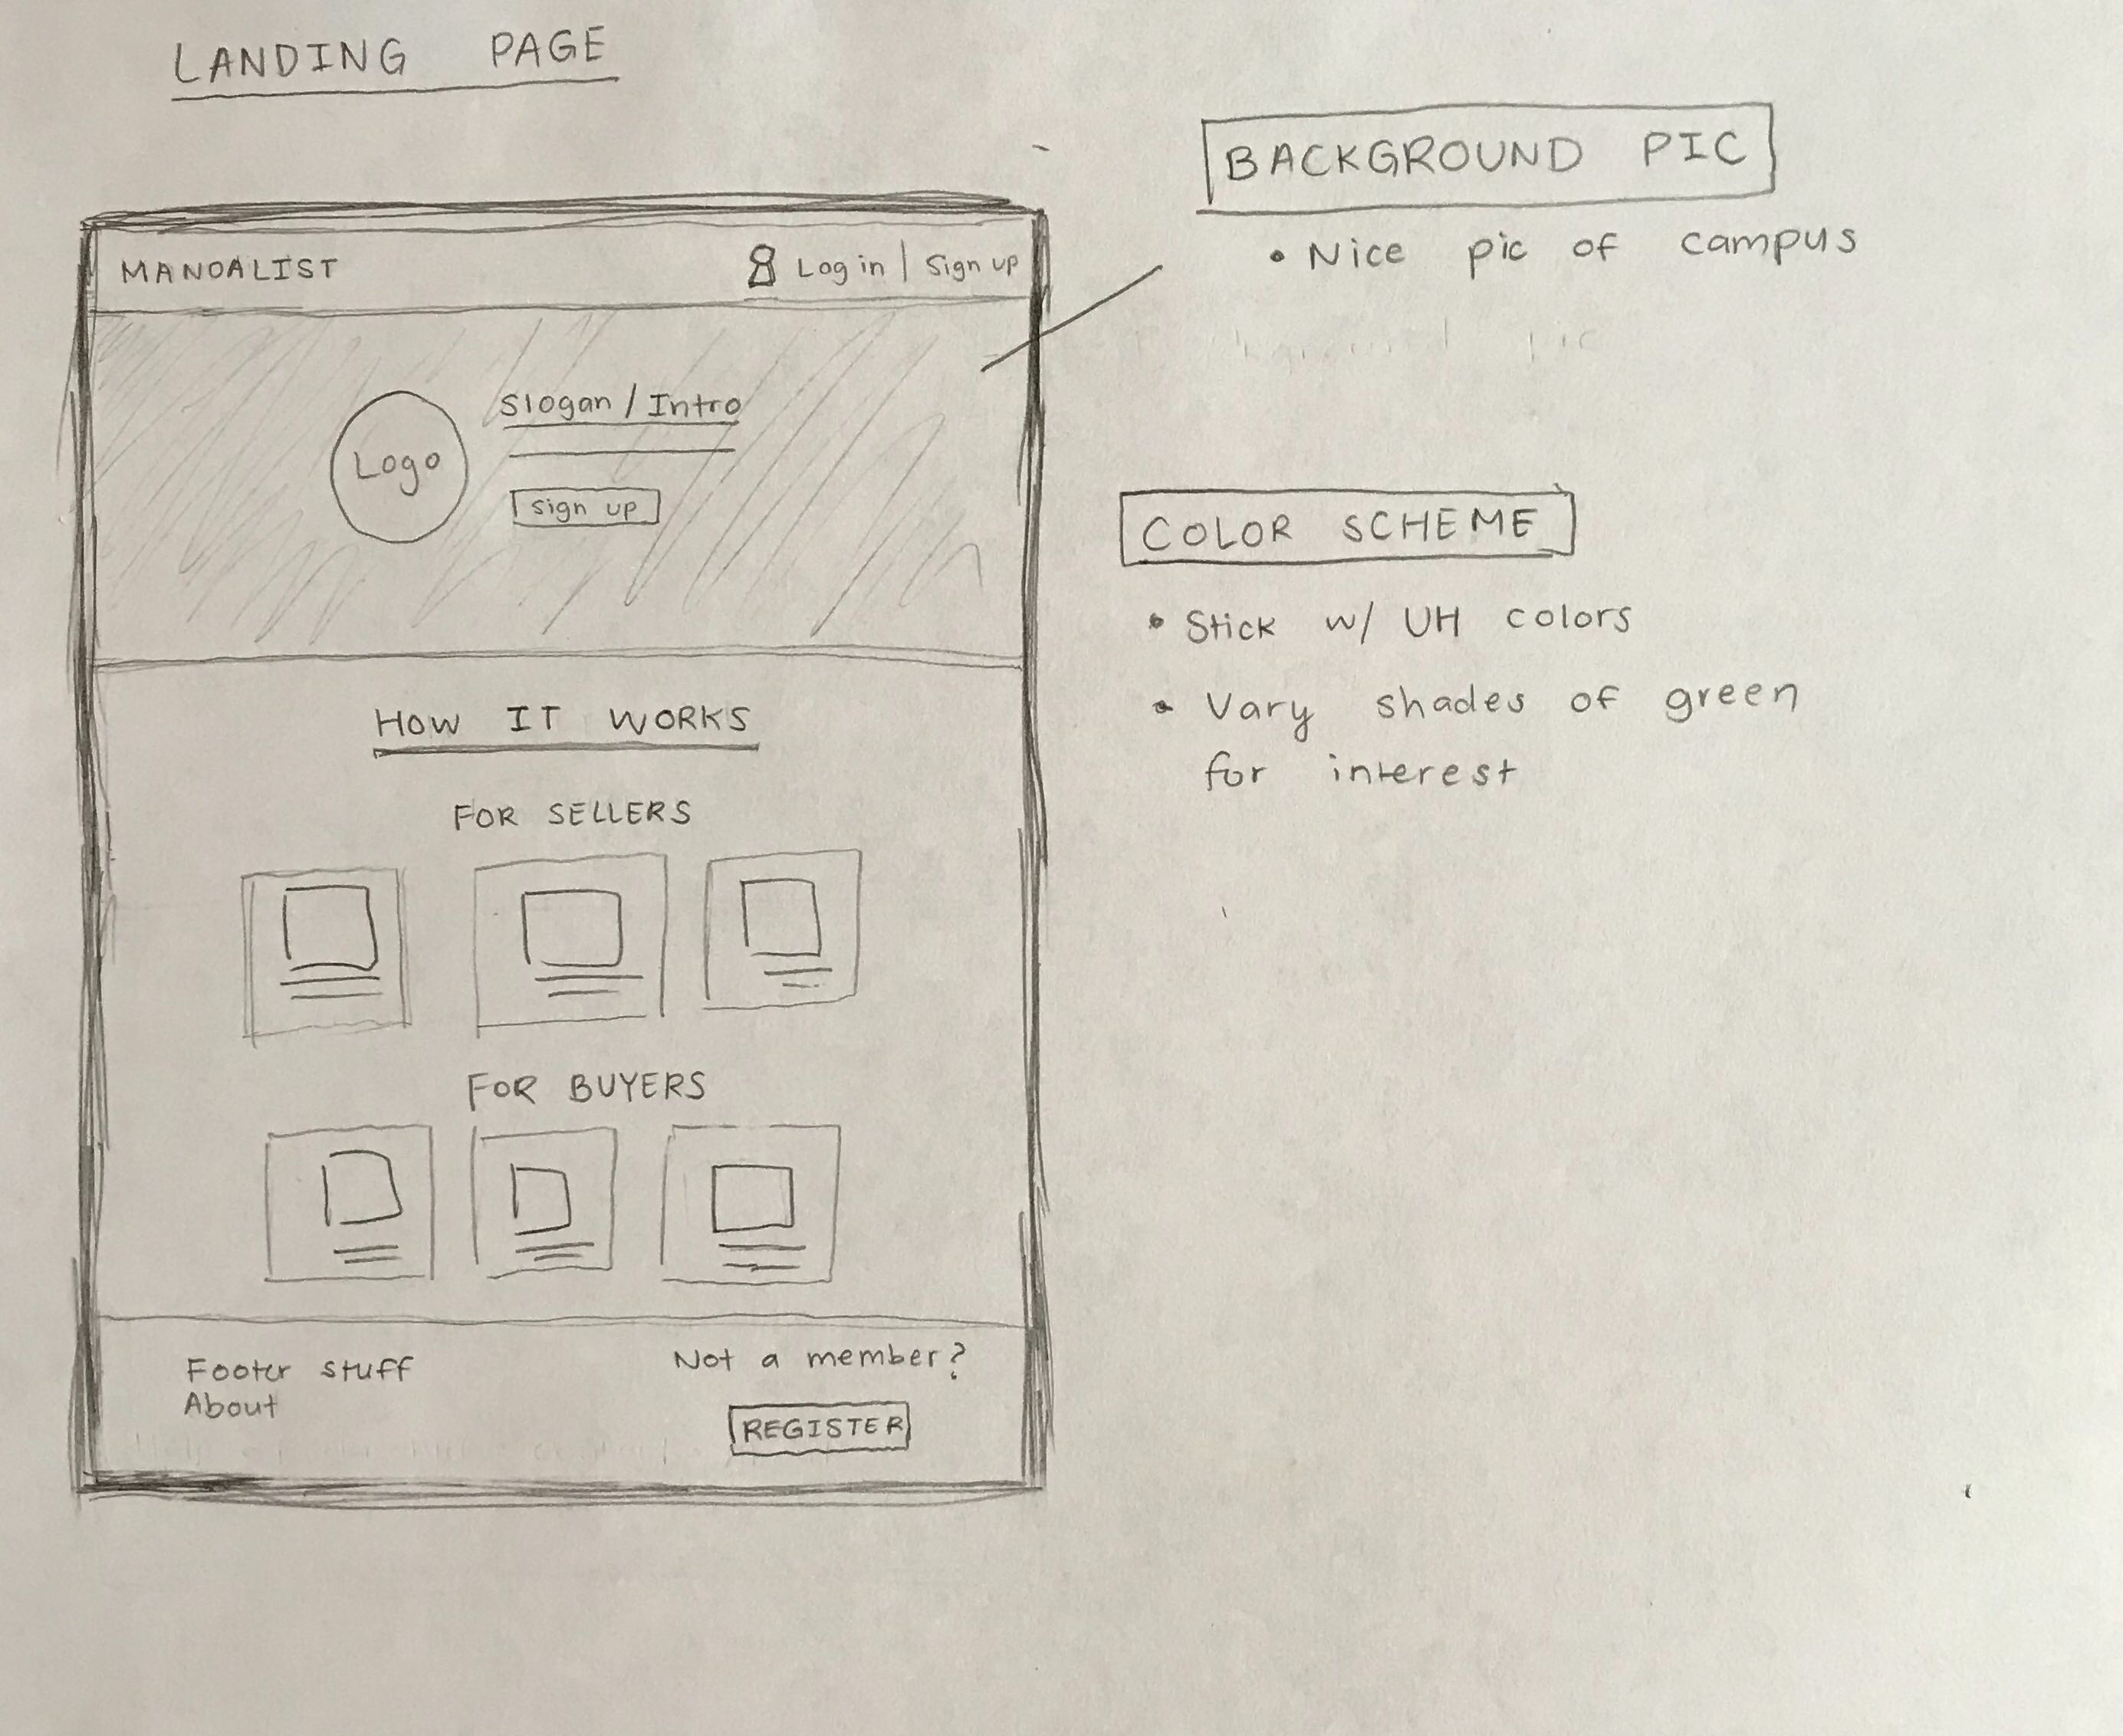 LANDING PAGE
MANOALIST
Log in | Sign up
Slogan / Intro
Logo
sign up
HOW IT WORKS
FOR SELLERS
FOR BUYERS
Footer stuff
About
Not a member?
REGISTER
BACKGROUND PIC
• Nice pic of campus
COLOR SCHEME
• Stick w/ UH colors
• Vary shades of green
for interest